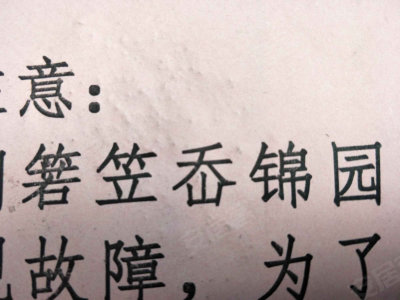 意：
箬笠岙锦园
故障，为了